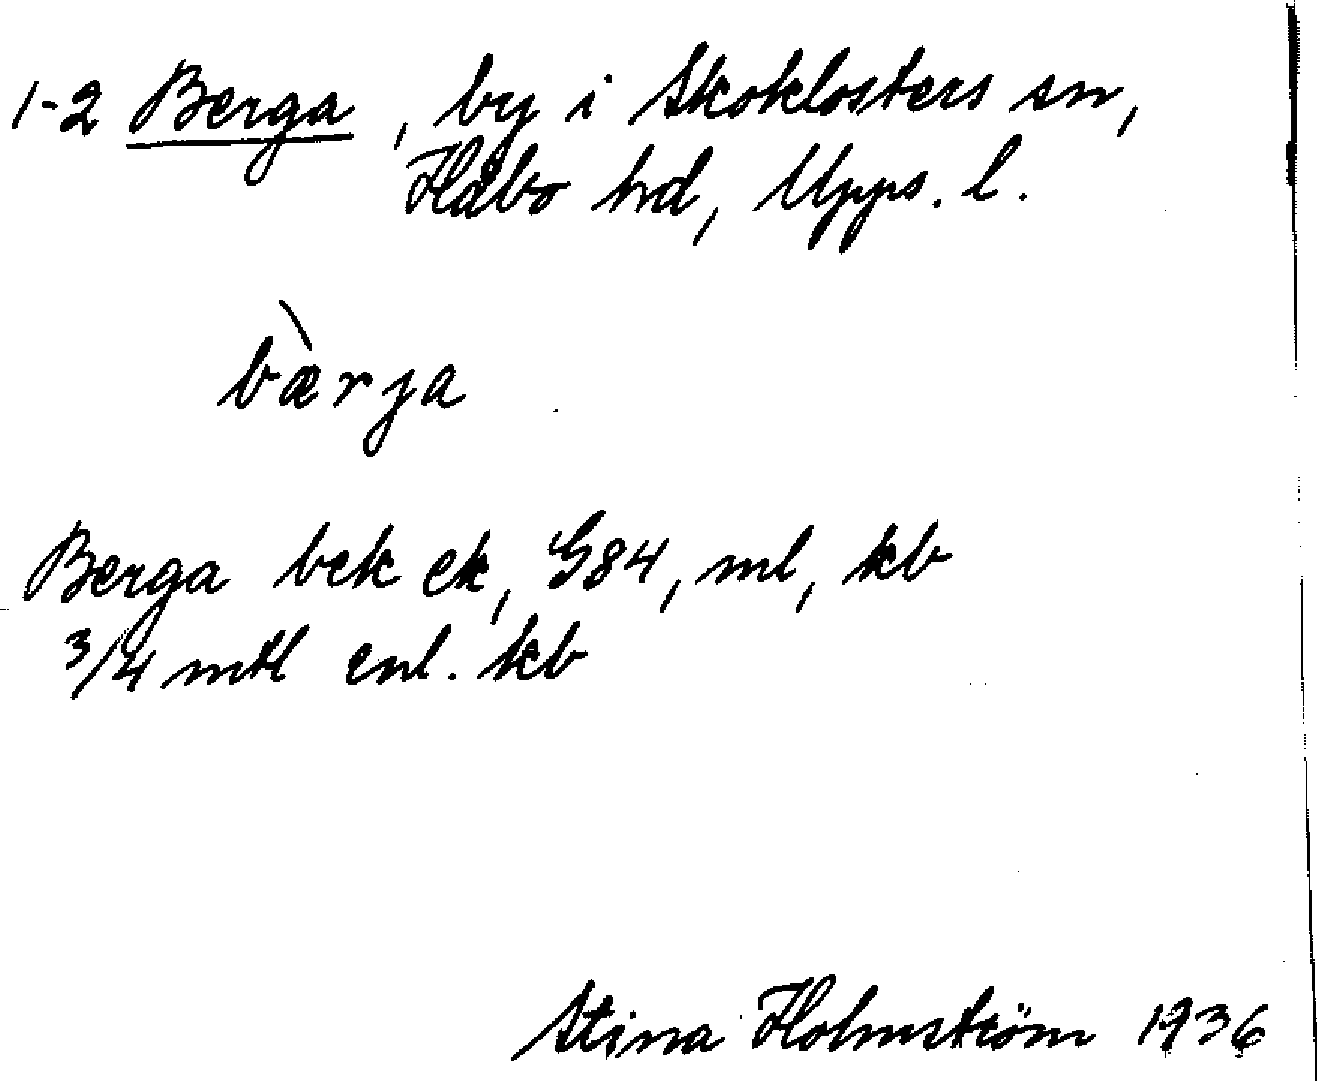 1-2 Berga, by i Skoklosters sn,
Håbo hd, Upps. l.
bæ̀rja
Berga bek ek, G84, ml, kb
3/4 mtl enl. kb
Stina Holmström 1936